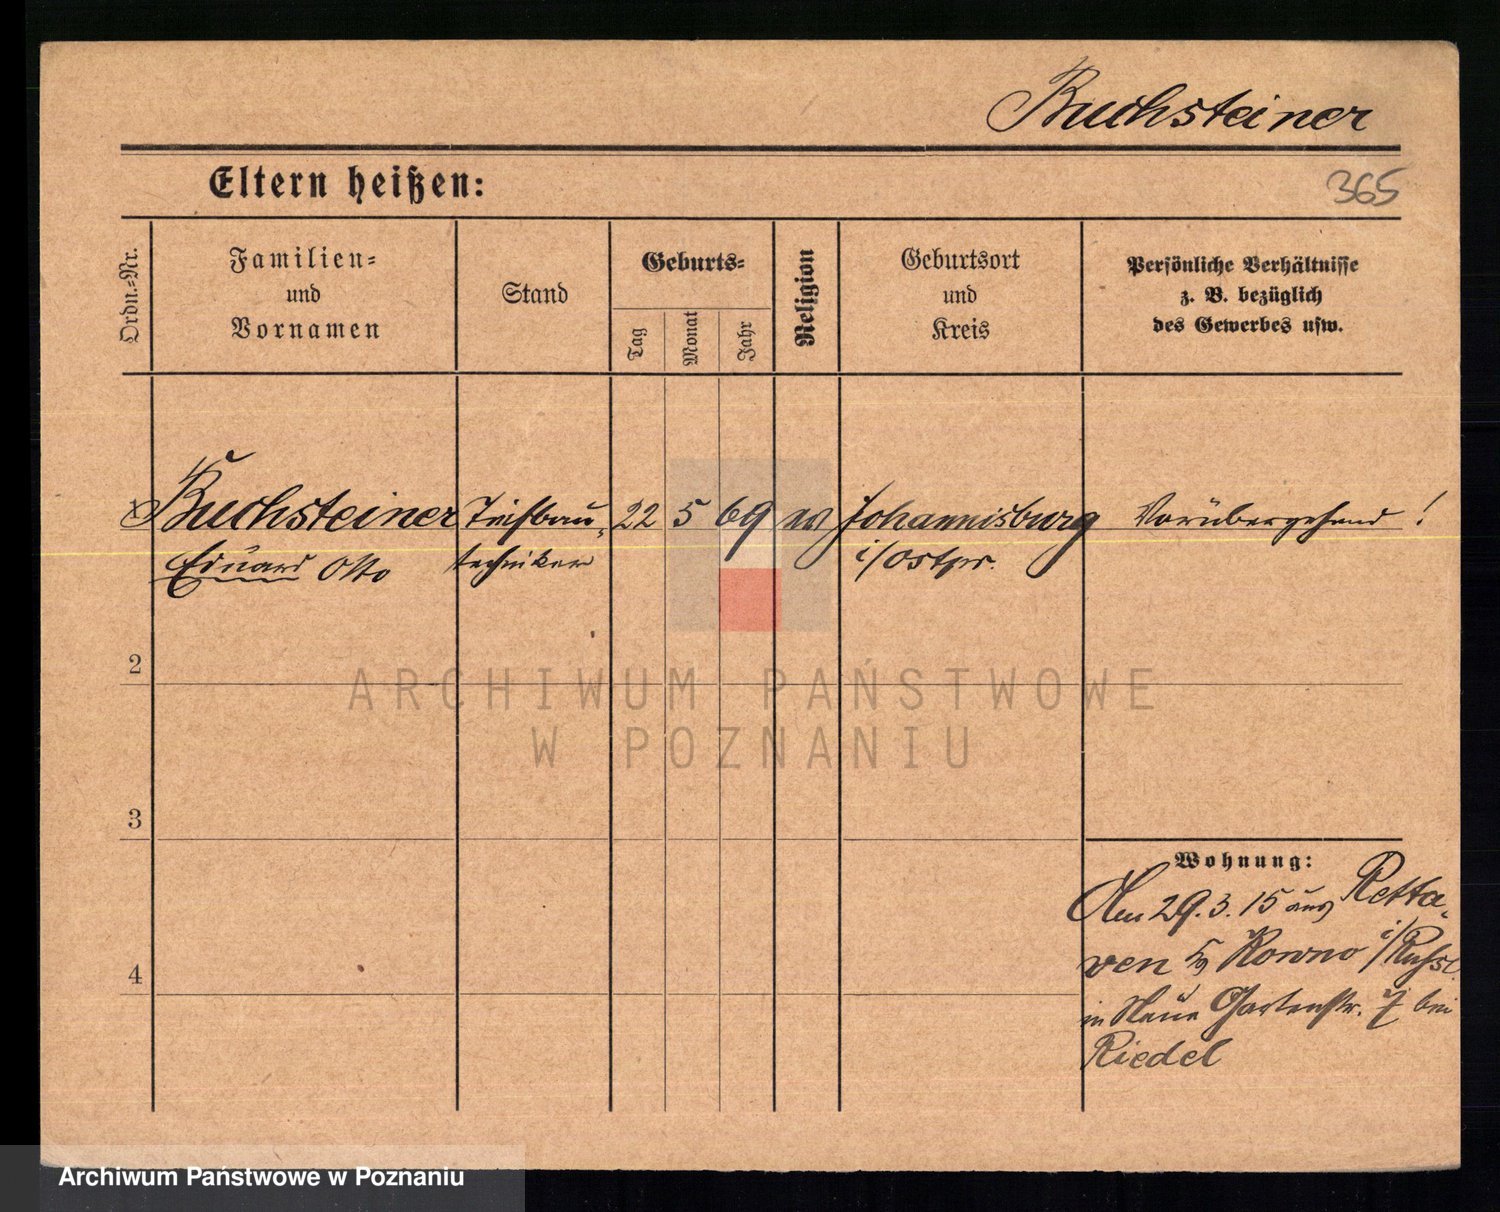 Buchsteiner
Eltern heißen:
365
Ordn.-Nr.
Familien-
und
Vornamen
Stand
Geburts-
Tag
Monat
Jahr
Religion
Geburtsort
und
Kreis
Persönliche Verhältnisse
z. B. bezüglich
des Gewerbes usw.
1 Buchsteiner Tiefbau- 22 5 69 ev Johannisburg Vorübergehend!
Eduard Otto techniker i/Ostpr.
2
ARCHIWUM PAŃSTWOWE
W POZNANIU
3
Wohnung:
Am 29.3.15 aus Retta-
4
ven Kowno i/Russl.
in Neue Gartenstr. 7 bei
Riedel
Archiwum Państwowe w Poznaniu